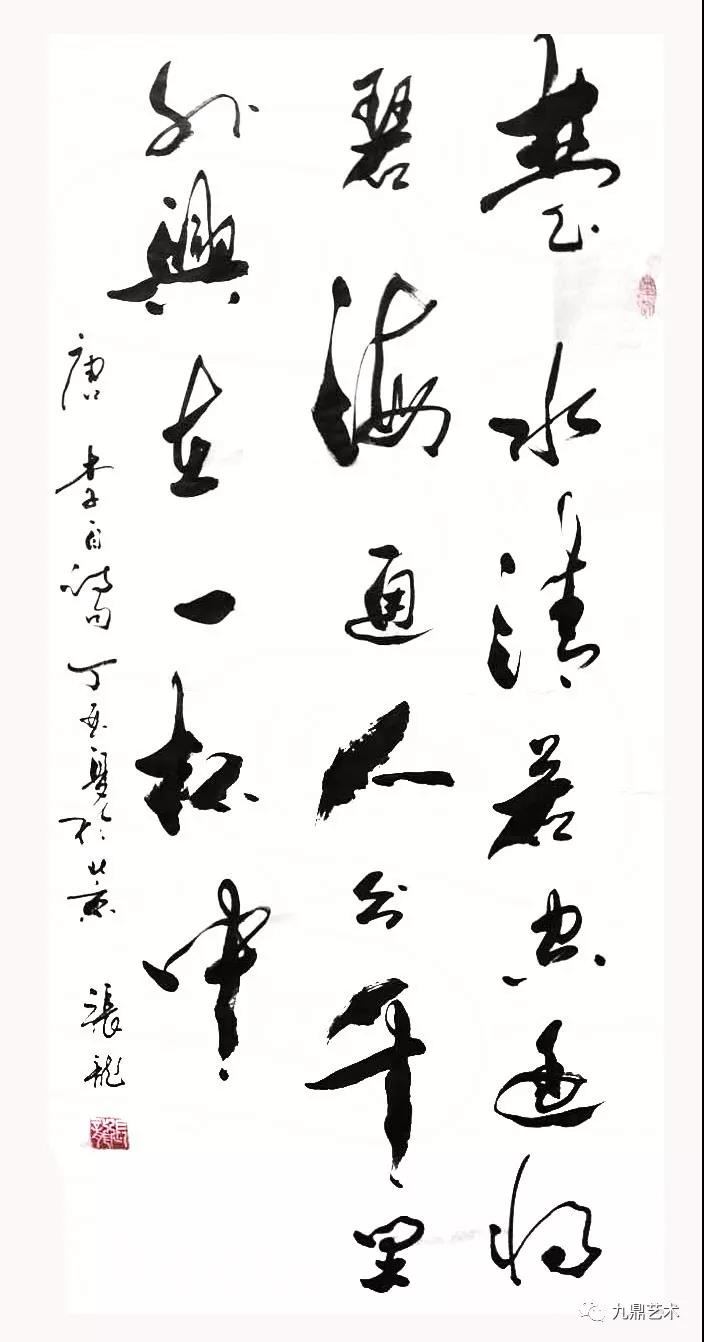 楚水清若空遥将
碧海通人分千里
外興在一杯中
唐李白詩句丁亥夏於北京
張龍
九鼎艺术